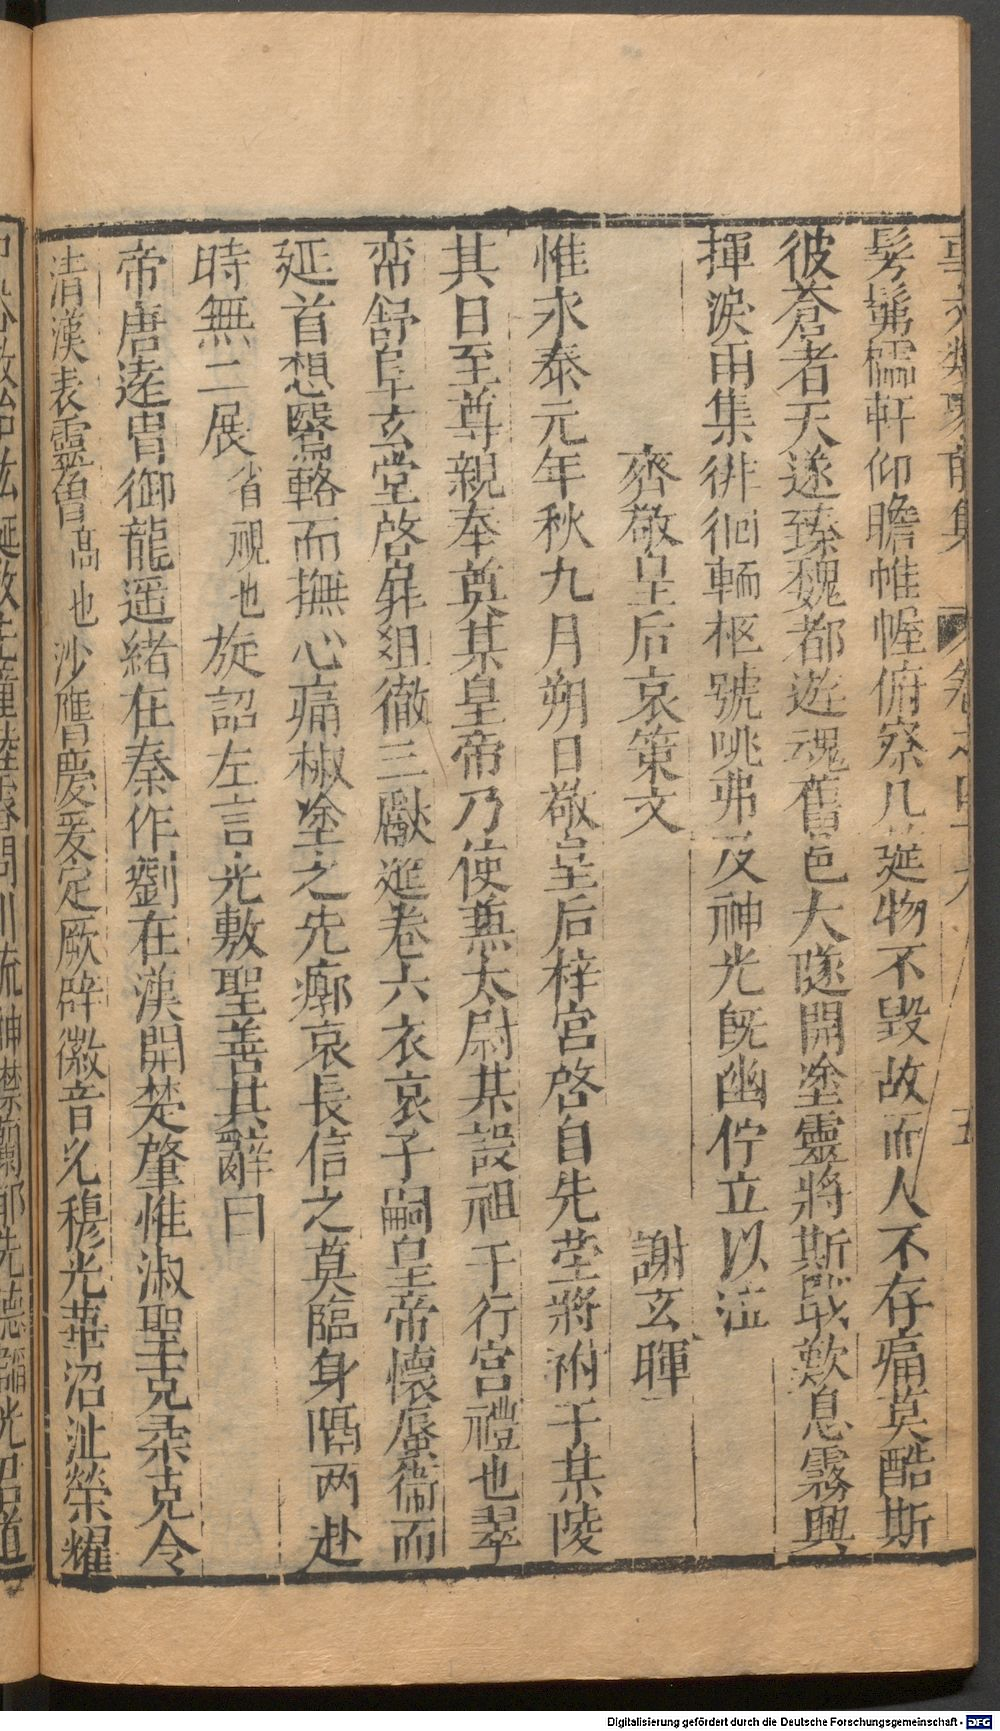 髣髴欞軒仰瞻帷幄俯察几筵物不毀故而人不存痛莫酷斯
彼蒼者天遂臻魏都遊魂舊邑大隧開塗靈將斯戢歎息霧興
揮淚雨集徘徊轜柩號咷弗及神光既幽佇立以泣
齊敬皇后哀策文 謝玄暉
惟永泰元年秋九月朔日敬皇后梓宮啓自先塋將祔于某陵
其日至尊親奉奠某皇帝乃使蒹太尉某設祖于行宮禮也翠
帟舒阜玄堂啓扉俎徹三獻筵卷六衣哀子嗣皇帝懷蜃衞而
延首想鷖輅而撫心痛椒塗之先廓哀長信之莫臨身隔两赴
時無二展省視也旋詔左言光敷聖善其辭曰
帝唐逺胄御龍遥緒在秦作劉在漢開楚肇惟淑聖克柔克令
清漢表靈曾髙也沙膺慶爰定厥辟徽音允穆光華沼沚榮耀
Digitalisierung gefördert durch die Deutsche Forschungsgemeinschaft - DFG